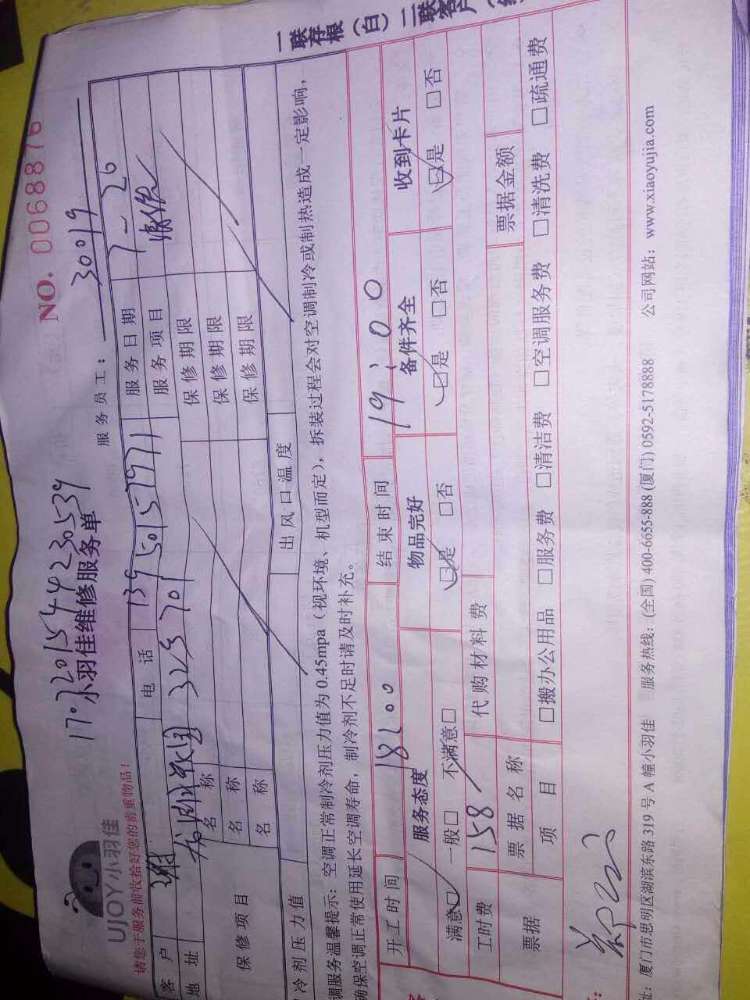 NO. 0068876
UJOY小羽佳
17072201544230539
小羽佳维修服务单
请您于服务前收拾好您的贵重物品!
服务员工: 30019
客户 谢 电话 13950157971 服务日期 7-20
地址 323 701 服务项目
保修项目 名称 保修期限
名称 保修期限
名称 保修期限
冷剂压力值 出风口温度
调服务温馨提示: 空调正常制冷剂压力值为 0.45mpa (视环境、机型而定), 拆装过程会对空调制冷或制热造成一定影响,
确保空调正常使用延长空调寿命, 制冷剂不足时请及时补充。
开工时间 18:00 结束时间 19:00
服务态度 物品完好 备件齐全 收到卡片
满意☑ 一般□ 不满意□ ☑是 □否 ☑是 □否 ☑是 □否
工时费 158 代购材料费
票据 票据名称 票据金额
项目 □搬办公用品 □服务费 □清洁费 □空调服务费 □清洗费 □疏通费
址: 厦门市思明区湖滨东路 319 号 A 幢小羽佳 服务热线: (全国) 400-6655-888 (厦门) 0592-5178888 公司网站: www.xiaoyujia.com
一联存根(白)二联客户